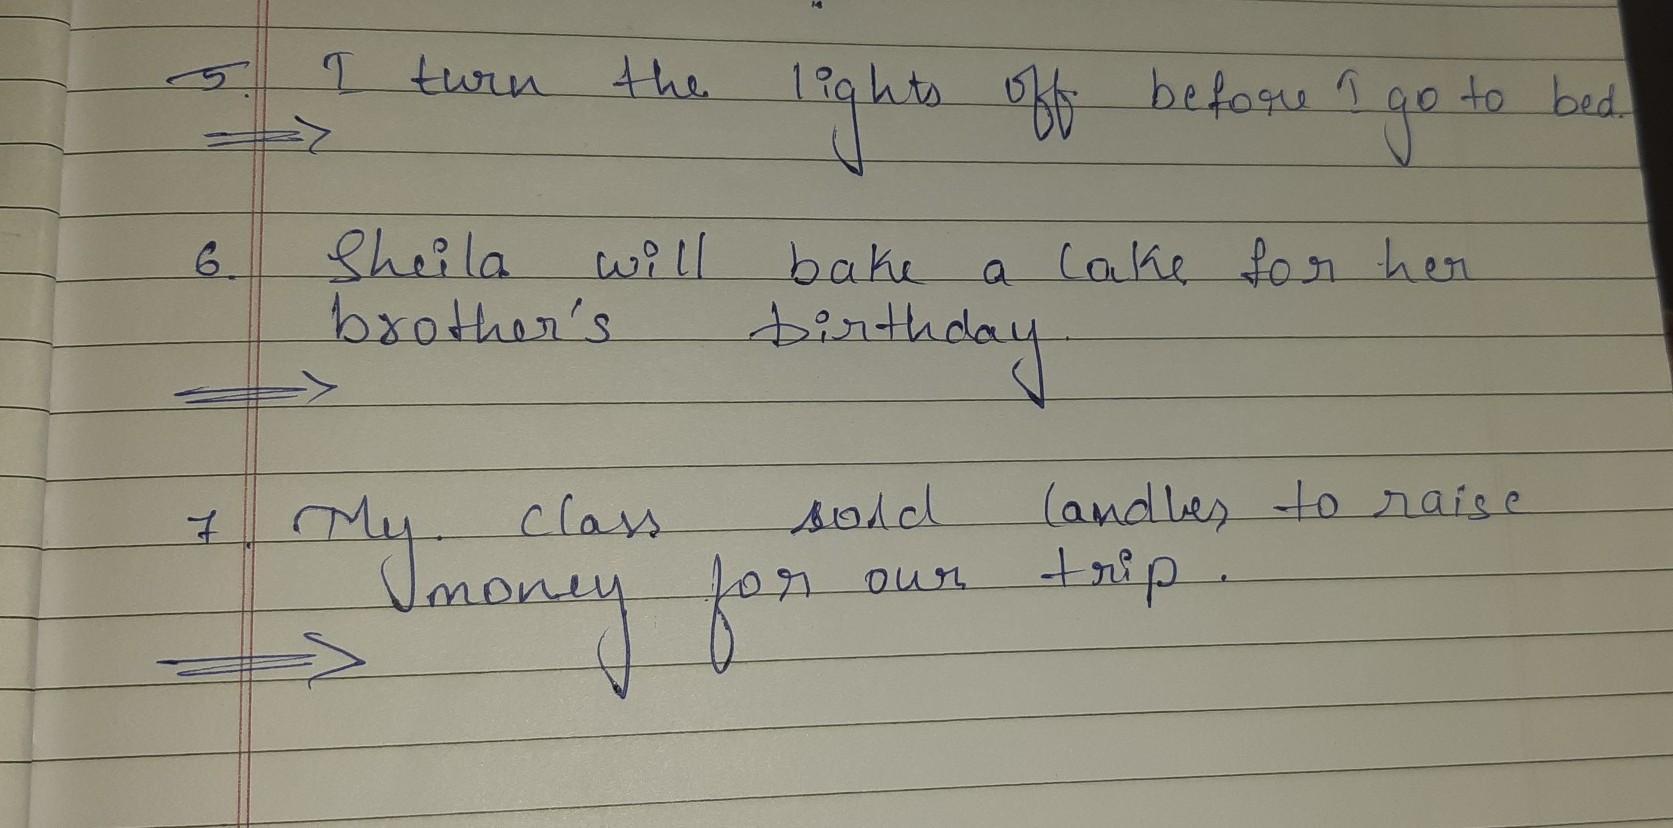 5. I turn the lights off before I go to bed.
⇒
6. Sheila will bake a cake for her
brother's birthday.
⇒
7. My class sold candles to raise
money for our trip.
⇒